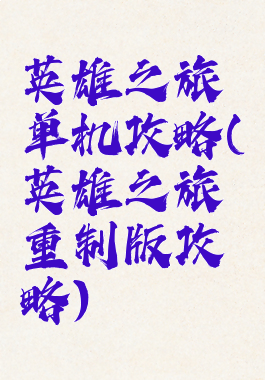 英雄之旅
单机攻略(
英雄之旅
重制版攻
略)